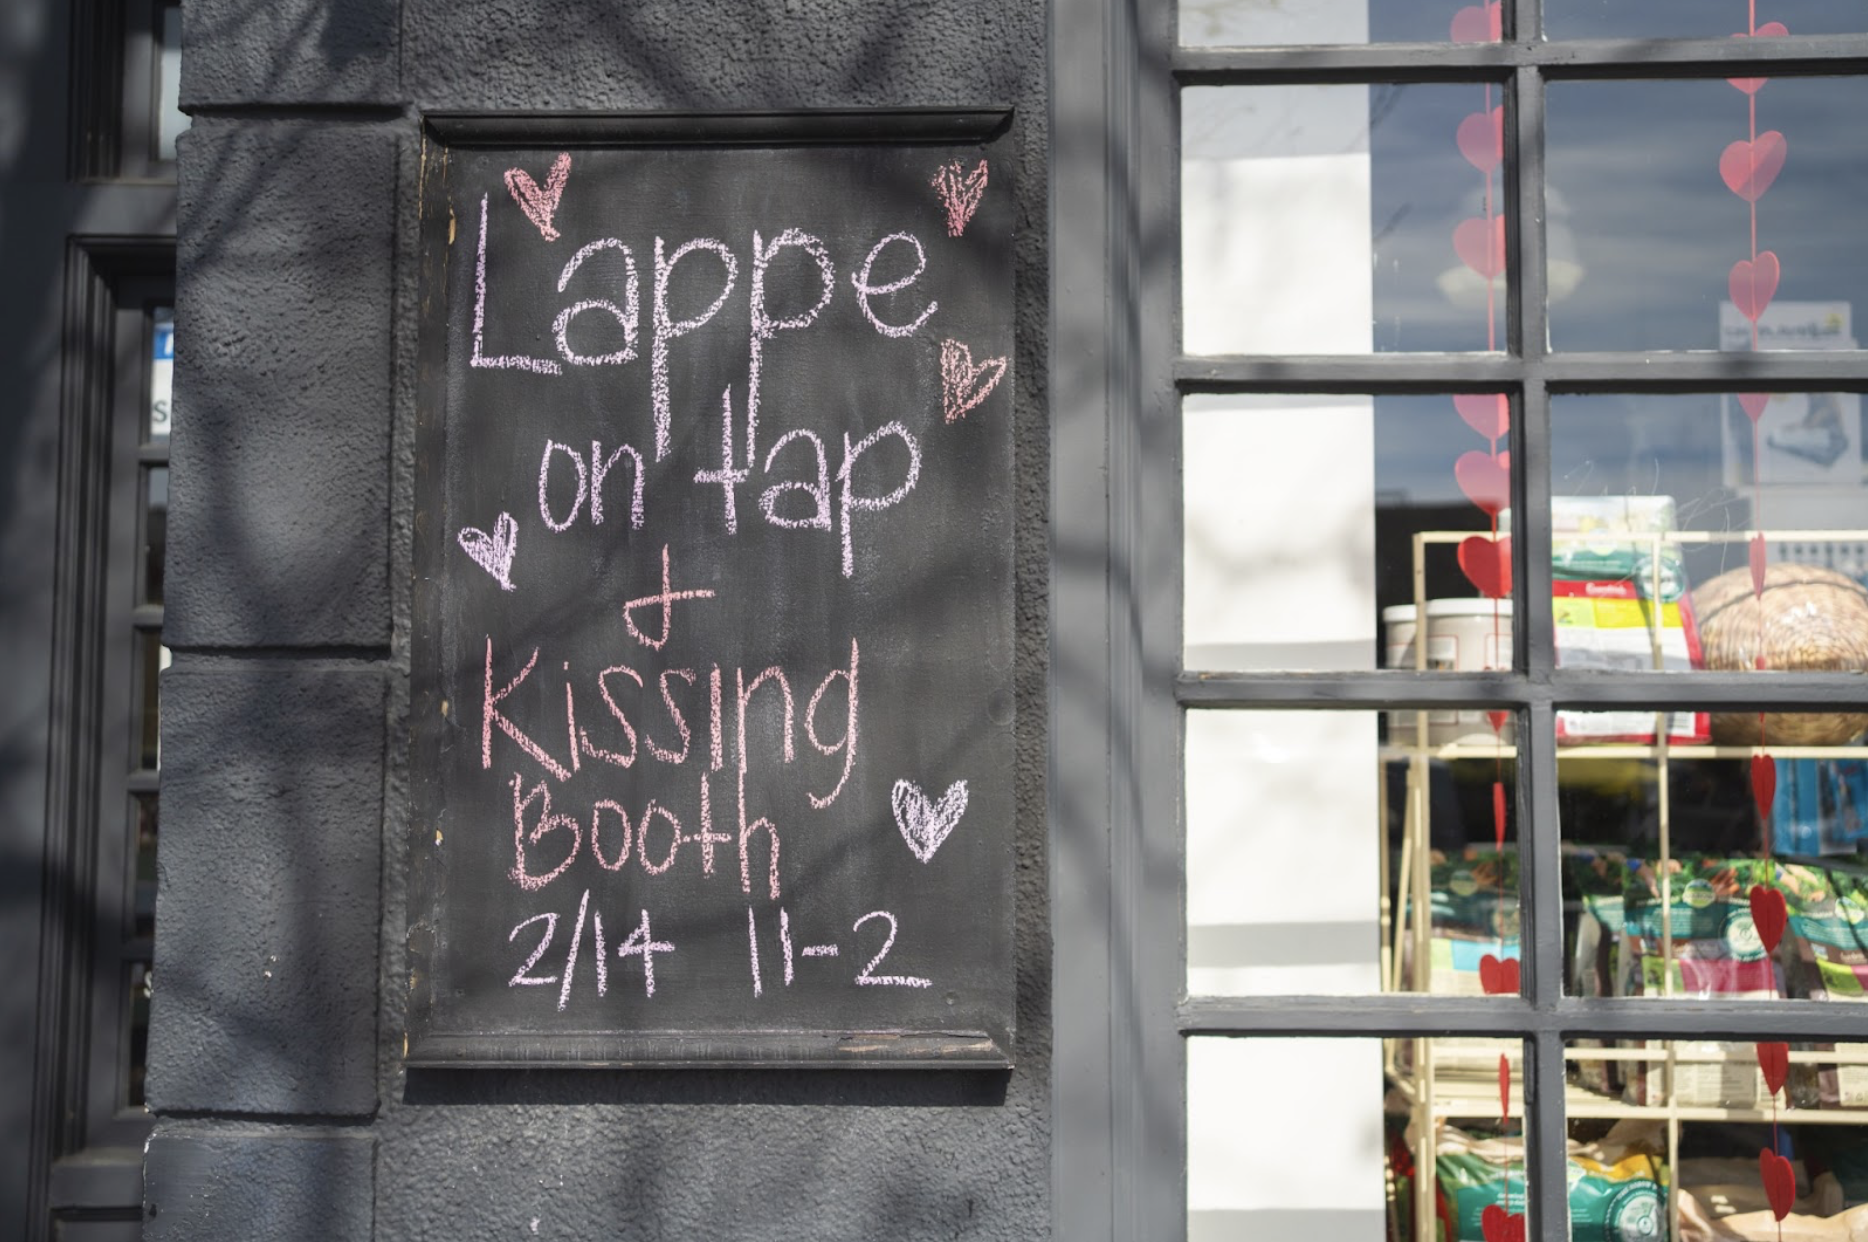 Lappe
on tap
&
Kissing
Booth
2/14 11-2